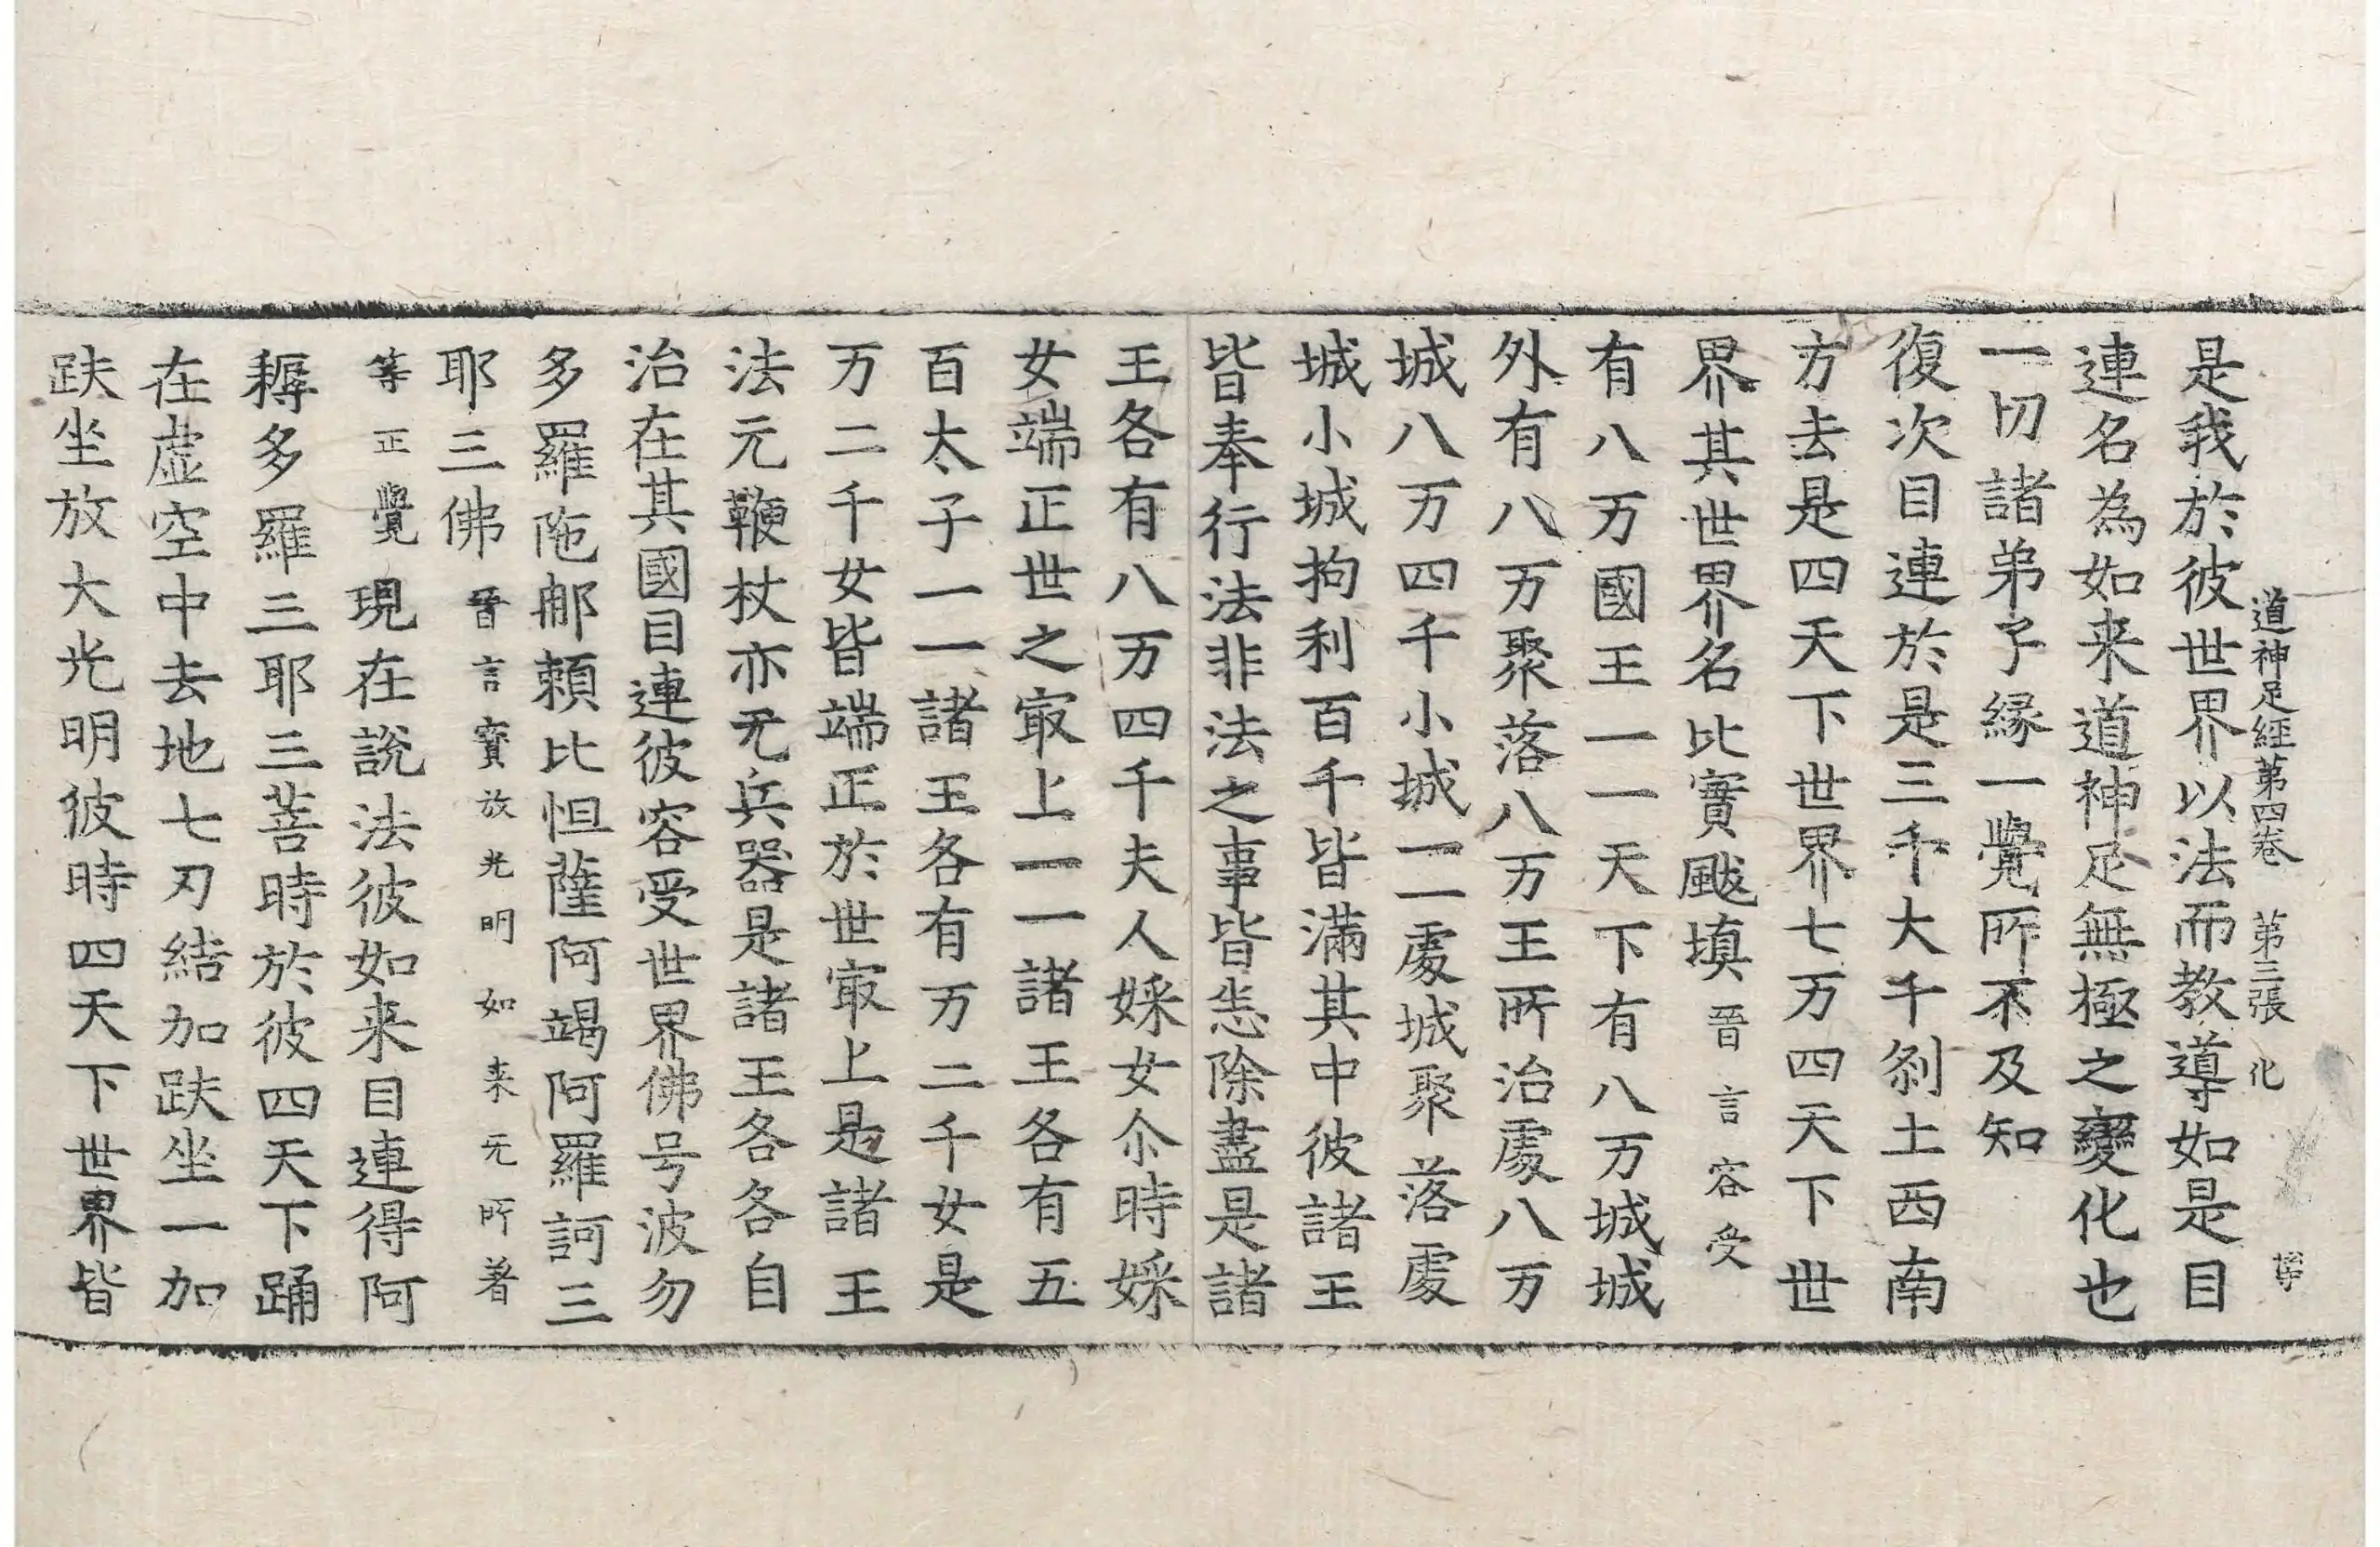 道神足經第四卷　第三張　化
是我於彼世界以法而教導如是目
連名為如来道神足無極之變化也
一切諸弟子縁一覺所不及知
復次目連於是三千大千剎土西南
方去是四天下世界七万四天下世
界其世界名比實颰填晉言容受
有八万國王一一天下有八万城城
外有八万聚落八万王所治處八万
城八万四千小城一一處城聚落處
城小城拘利百千皆滿其中彼諸王
皆奉行法非法之事皆悉除盡是諸
王各有八万四千夫人婇女尒時婇
女端正世之㝡上一一諸王各有五
百太子一一諸王各有万二千女是
万二千女皆端正於世㝡上是諸王
法无鞭杖亦无兵器是諸王各各自
治在其國目連彼容受世界佛号波勿
多羅陁郍頼比怛薩阿竭阿羅訶三
耶三佛晉言寳放光明如来无所著
等正覺現在說法彼如来目連得阿
耨多羅三耶三菩時於彼四天下踊
在虚空中去地七刃結加趺坐一加
趺坐放大光明彼時四天下世界皆